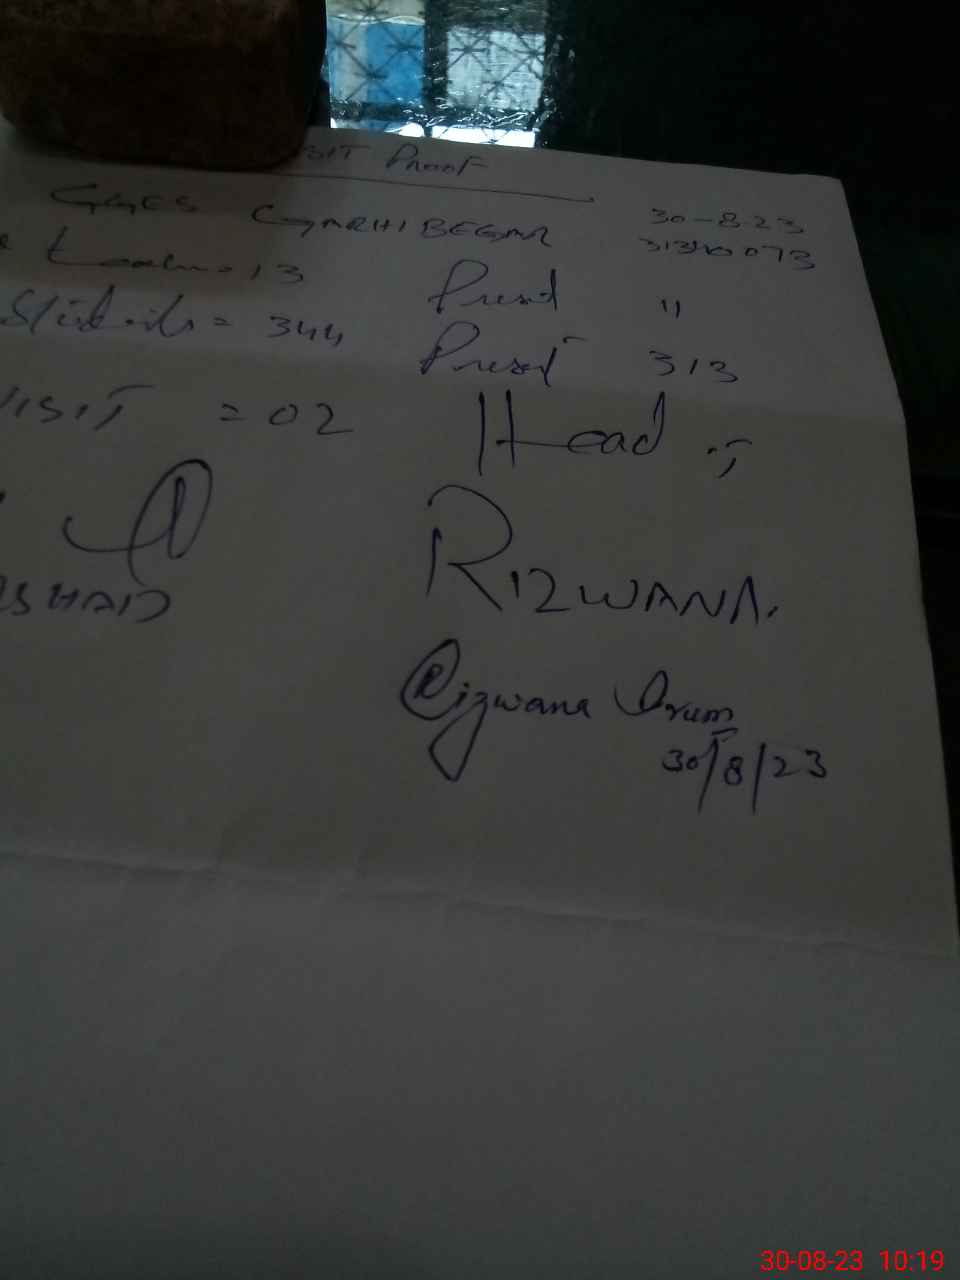 SIT Proof
GGES GARHI BEGAR 30-8-23
313
13 Present 11
Students = 344 Present 313
VISIT = 02 Head
RSHAD RIZWANA.
Rizwana Irum
30/8/23
30-08-23 10:19